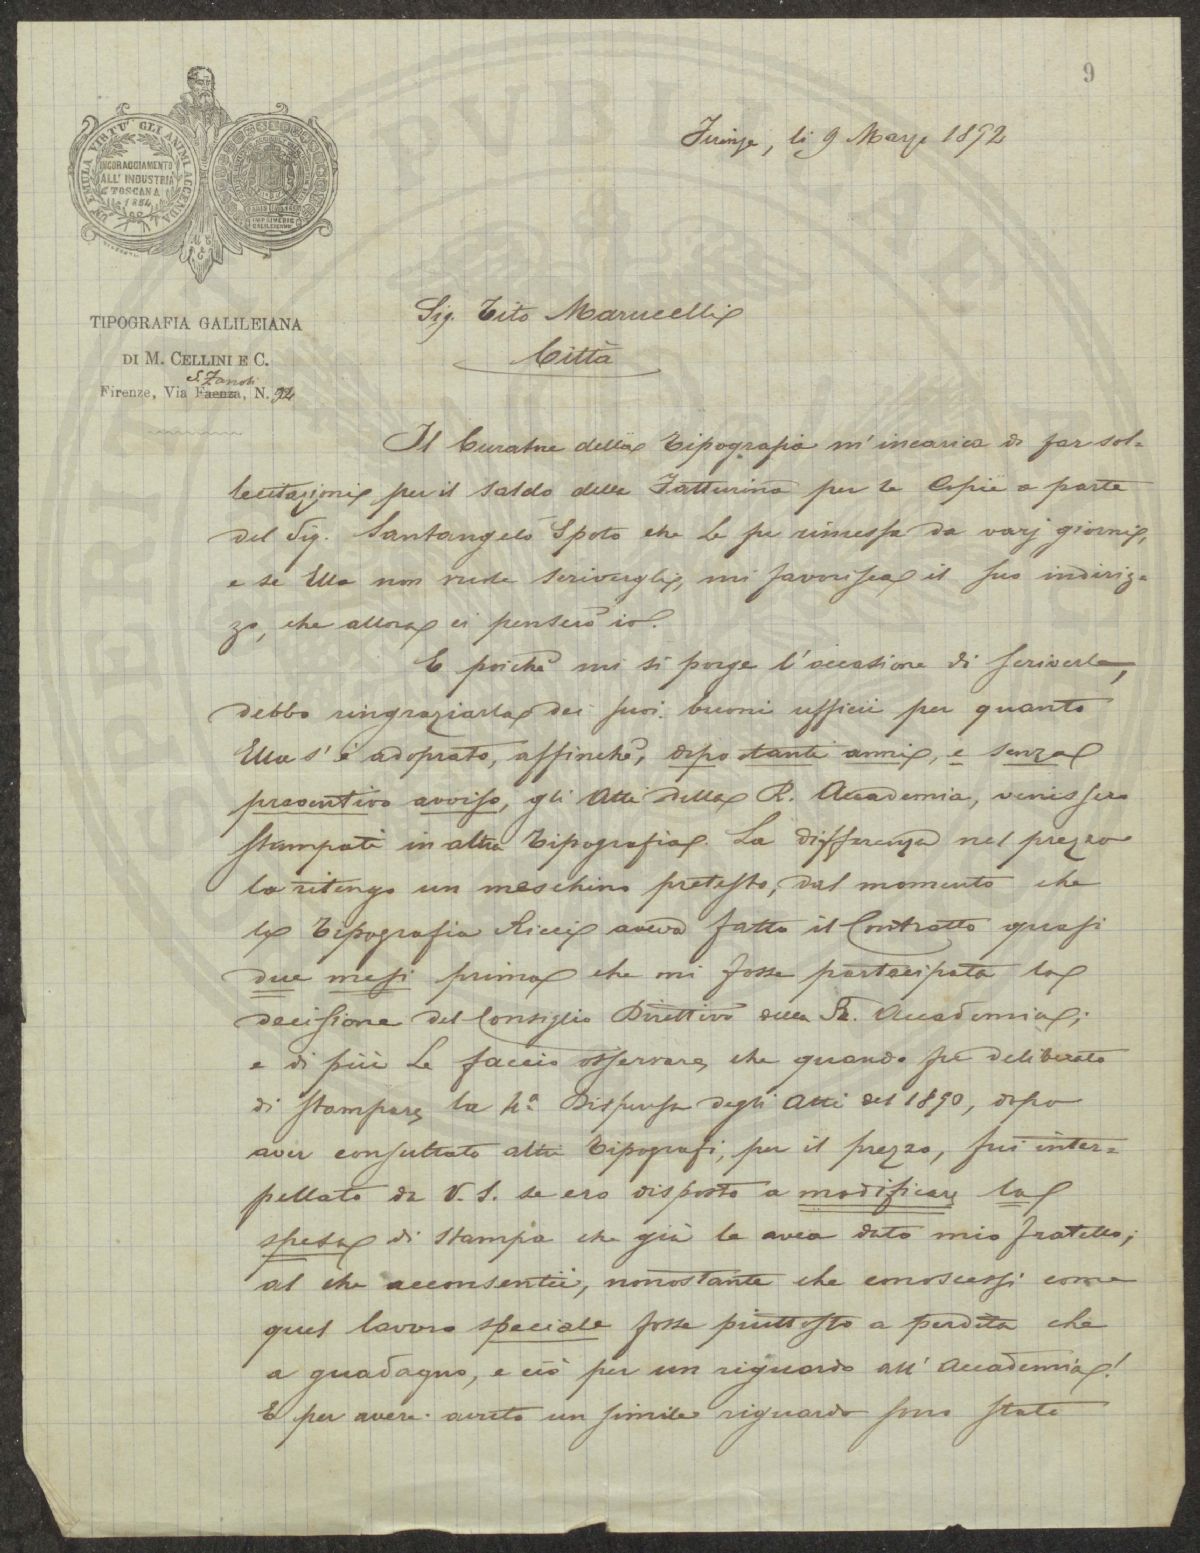 9
Firenze, li 9 Marzo 1892
UN'EMULA VIRTU' GLI ANIMI ACCENDA
INCORAGGIAMENTO
ALL'INDUSTRIA
TOSCANA
1854
IMPRIMERIE
GALILEIENNE
M C & C
TIPOGRAFIA GALILEIANA
DI M. CELLINI E C.
S. Zanobi
Firenze, Via Faenza, N. 92
Sig. Tito Marucelli
Città
Il Curatore della Tipografia m'incarica di far sol=
lecitazioni per il saldo della Fatturina per le Copie a parte
del Sig. Santangelo Spoto che Le fu rimessa da varj giorni,
e se Ella non vuole scrivergli, mi favorisca il suo indiriz=
zo, che allora ci penserò io.
E poichè mi si porge l'occasione di scriverle,
debbo ringraziarla dei suoi buoni ufficii per quanto
Ella s'è adoprato, affinchè, dopo tanti anni, e senza
preventivo avviso, gli Atti della R. Accademia, venissero
stampati in altra Tipografia. La differenza nel prezzo
la ritengo un meschino pretesto, dal momento che
la Tipografia Ricci aveva fatto il Contratto quasi
due mesi prima che mi fosse partecipata la
decisione del Consiglio Direttivo della R. Accademia;
e di più Le faccio osservare, che quando fu deliberato
di stampare la 4ª Dispensa degli Atti del 1890, dopo
aver consultato altri Tipografi, per il prezzo, fui inter=
pellato da V. S. se ero disposto a modificare la
spesa di stampa che già le avea dato mio fratello;
al che acconsentii, nonostante che conoscessi come
quel lavoro speciale fosse piuttosto a perdita che
a guadagno, e ciò per un riguardo all'Accademia!
E per avere avuto un simile riguardo sono stato